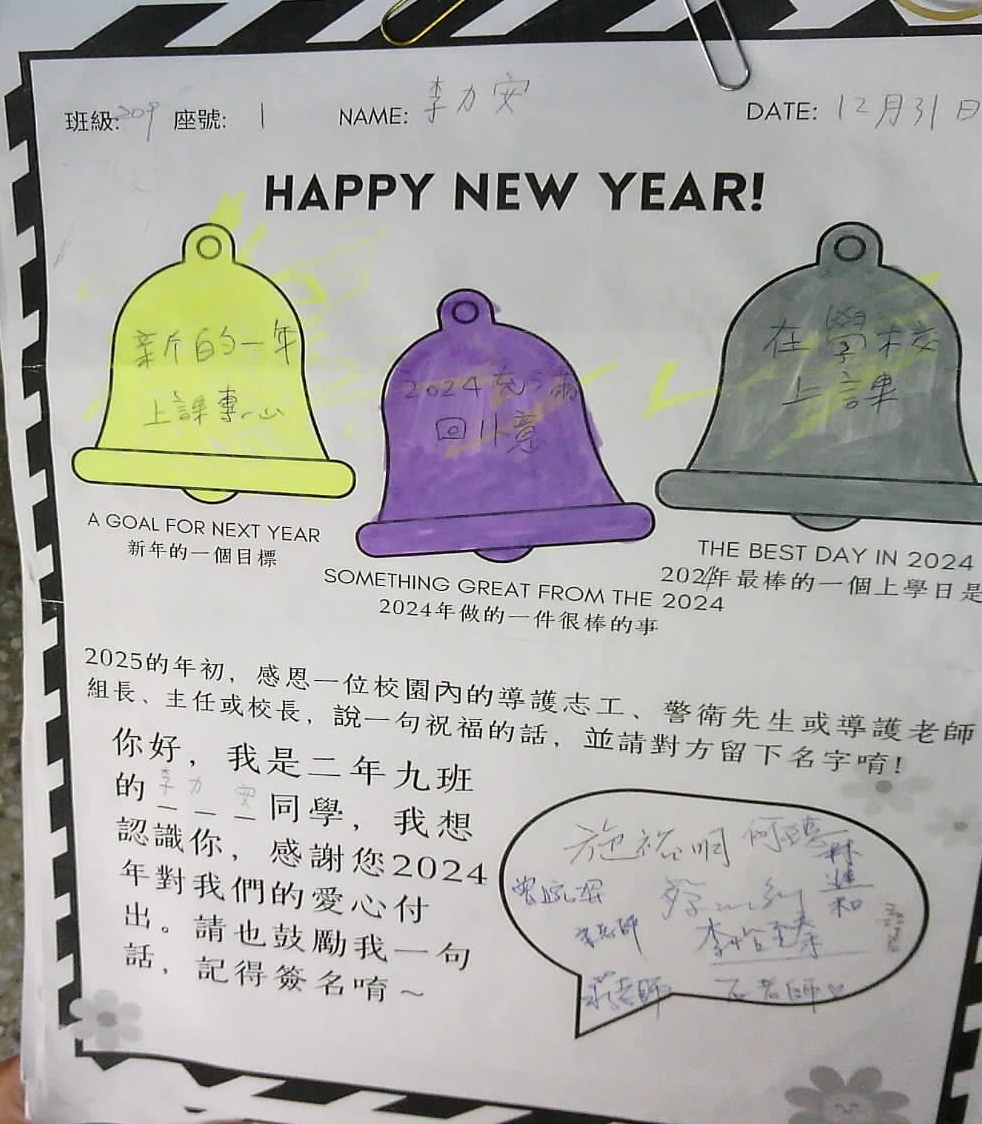 班級: 209 座號: 1 NAME: 李力安 DATE: 12月31日
HAPPY NEW YEAR!
新的一年
上課專心
2024充滿
回卟意
在學校
上課
A GOAL FOR NEXT YEAR
新年的一個目標
SOMETHING GREAT FROM THE 2024
2024年做的一件很棒的事
THE BEST DAY IN 2024
2024年最棒的一個上學日是
2025的年初，感恩一位校園內的導護志工、警衛先生或導護老師
組長、主任或校長，說一句祝福的話，並請對方留下名字唷!
你好，我是二年九班
的李力安同學，我想
認識你，感謝您2024
年對我們的愛心付
出。請也鼓勵我一句
話，記得簽名唷~
施裕明
林進和